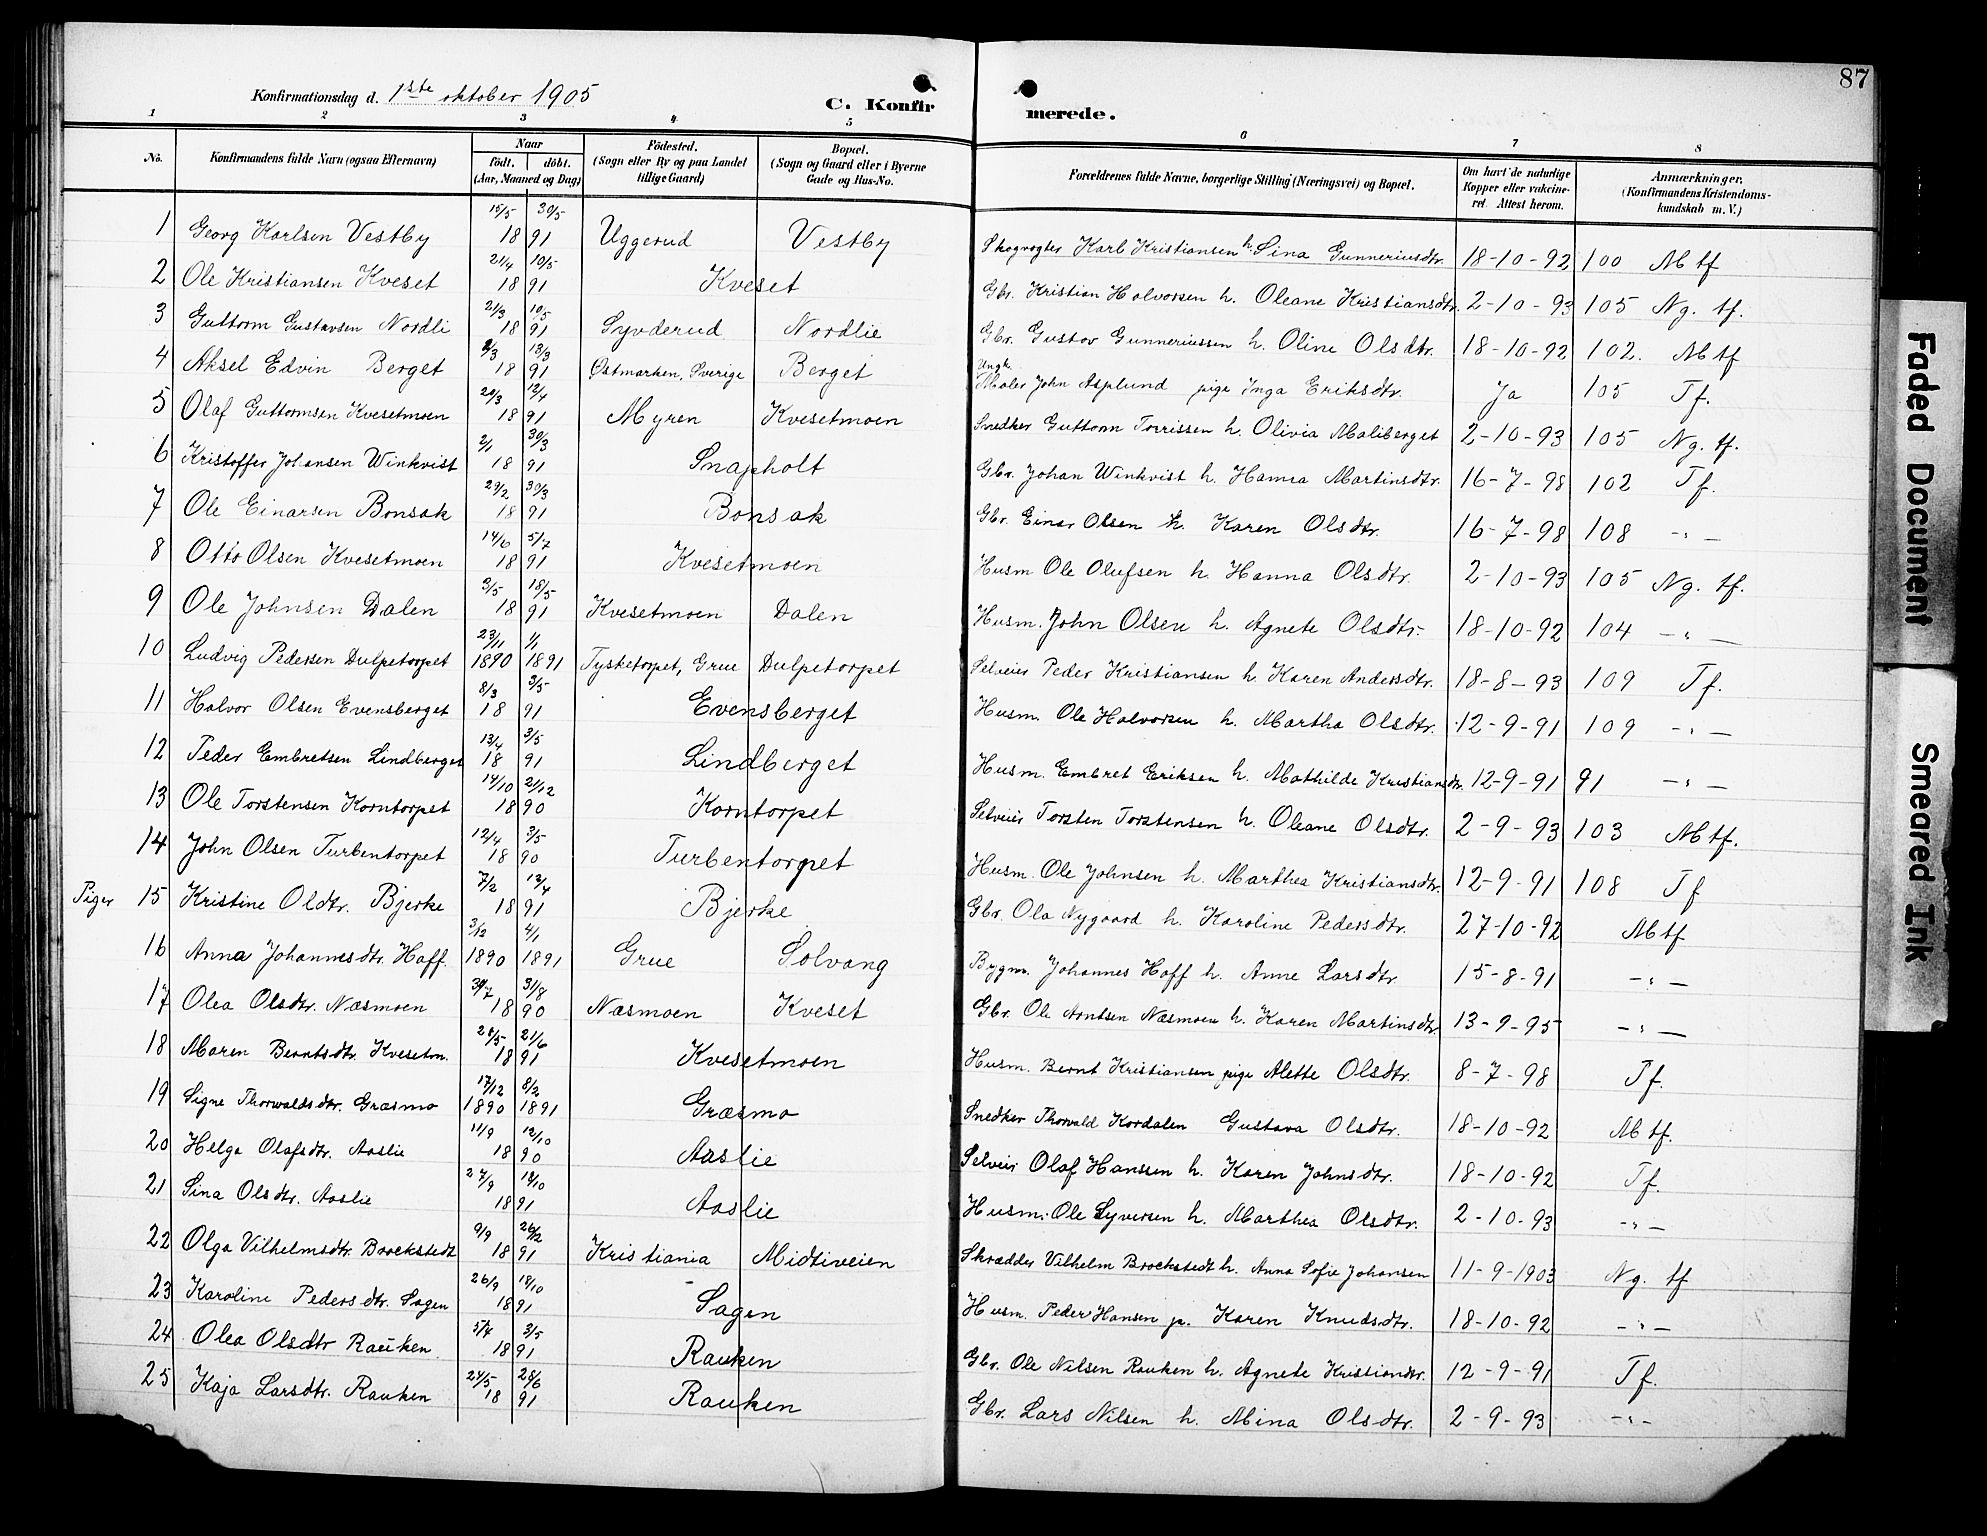 87
Konfirmationsdag d. 1ste oktober 1905
C. Konfirmerede.
1 2 3 4 5 6 7 8
No. Konfirmandens fulde Navn (ogsaa Efternavn) Naar født. døbt. (Aar, Maaned og Dag) Fødested. (Sogn eller By og paa Landet tillige Gaard) Bopæl. (Sogn og Gaard eller i Byerne Gade og Hus-No. Forældrenes fulde Navne, borgerlige Stilling (Næringsvei) og Bopæl. Om havt de naturlige Kopper eller vakcineret. Attest herom. Anmærkninger. (Konfirmandens Kristendomskundskab m. V.)
1 Georg Karlsen Vestby 15/5 30/5 1891 Uggerud Vestby Skogvogter Karl Kristiansen h. Sina Gunneriusdtr. 18-10-92 100 M tf
2 Ole Kristiansen Kveset 21/4 10/5 1891 Kveset Gbr. Kristian Halvorsen h. Oleane Kristiansdtr. 2-10-93 105 Ng. tf.
3 Guttorm Gustavsen Nordli 21/3 10/5 1891 Syvderud Nordlie Gbr. Gustav Gunneriussen h. Oline Olsdtr. 18-10-92 102. M tf
4 Aksel Edvin Berget 2/3 13/3 1891 Østmarken, Sverige Berget Ungk. Maler John Asplund pige Inga Eriksdtr. Ja 105 Tf.
5 Olaf Guttormsen Kvesetmoen 20/3 12/4 1891 Myren Kvesetmoen Snedker Guttorm Torrissen h. Olivia Maliberget 2-10-93 105 Ng. tf.
6 Kristoffer Johansen Winkvist 2/1 30/3 1891 Snapholt Gbr. Johan Winkvist h. Hanna Martinsdtr. 16-7-98 102 Tf.
7 Ole Einarsen Bonsak 29/2 30/3 1891 Bonsak Gbr. Einar Olsen h. Karen Olsdtr. 16-7-98 108 -"-
8 Otto Olsen Kvesetmoen 14/6 5/7 1891 Kvesetmoen Husm Ole Olufsen h. Hanna Olsdtr. 2-10-93 105 Ng. tf.
9 Ole Johnsen Dalen 3/5 18/5 1891 Kvesetmoen Dalen Husm. John Olsen h. Agnete Olsdtr. 18-10-92 104 -"-
10 Ludvig Pedersen Dulpetorpet 23/11 1890 1/1 1891 Tysketorpet, Grue Dulpetorpet Selveier Peder Kristiansen h. Karen Andersdtr. 18-8-93 109 Tf.
11 Halvor Olsen Evensberget 8/3 3/5 1891 Evensberget Husm. Ole Halvorsen h. Martha Olsdtr. 12-9-91 109 -"-
12 Peder Embretsen Lindberget 13/4 3/5 1891 Lindberget Husm. Embret Eriksen h. Mathilde Kristiansdtr. 12-9-91 91 -"-
13 Ole Torstensen Korntorpet 14/10 21/12 1890 Korntorpet Selveier Torsten Torstensen h. Oleane Olsdtr. 2-9-93 103 M tf.
14 John Olsen Turbentorpet 12/4 3/5 1890 Turbentorpet Husm. Ole Johnsen h. Marthea Kristiansdtr. 12-9-91 108 Tf
Piger 15 Kristine Oldtr. Bjerke 7/2 12/4 1891 Bjerke Gbr. Ola Nygaard h. Karoline Pedersdtr. 27-10-92 M tf
16 Anna Johannesdtr. Hoff. 3/12 1890 4/1 1891 Grue Solvang Bygm. Johannes Hoff h. Anne Larsdtr. 15-8-91 -"-
17 Olea Olsdtr. Næsmoen 30/7 31/8 1890 Næsmoen Kveset Gbr. Ole Arntsen Næsmoen h. Karen Martinsdtr. 13-9-95 -"-
18 Maren Berntsdtr. Kvesetm. 28/5 21/6 1891 Kvesetmoen Husm. Bernt Kristiansen pige Alette Olsdtr. 8-7-98 Tf.
19 Signe Thorwaldsdtr. Græsmo 17/12 1890 8/2 1891 Græsmo Snedker Thorvald Kordalen Gustava Olsdtr. 18-10-92 M tf.
20 Helga Olafsdtr. Aaslie 11/9 12/10 1890 Aaslie Selveier Olaf Hanssen h. Karen Johnsdtr. 18-10-92 Tf.
21 Sina Olsdtr. Aaslie 27/9 18/10 1891 Aaslie Husm. Ole Syversen h. Marthea Olsdtr. 2-10-93 -"-
22 Olga Vilhelmsdtr. Brockstedt 9/9 26/12 1891 Kristiania Midtiveien Skrædder Vilhelm Brockstedt h. Anna Sofie Johansen 11-9-1903 Ng. tf
23 Karoline Pedersdtr. Sagen 26/9 18/10 1891 Sagen Husm. Peder Hansen p. Karen Knudsdtr. 18-10-92 -"-
24 Olea Olsdtr Rauken 5/4 3/5 1891 Rauken Gbr. Ole Nilsen Rauken h. Agnete Kristiansdtr. 12-9-91 Tf.
25 Kaja Larsdtr. Rauken 24/5 28/6 1891 Rauken Gbr. Lars Nilsen h. Mina Olsdtr. 2-9-93 -"-
Faded Document
Smeared Ink